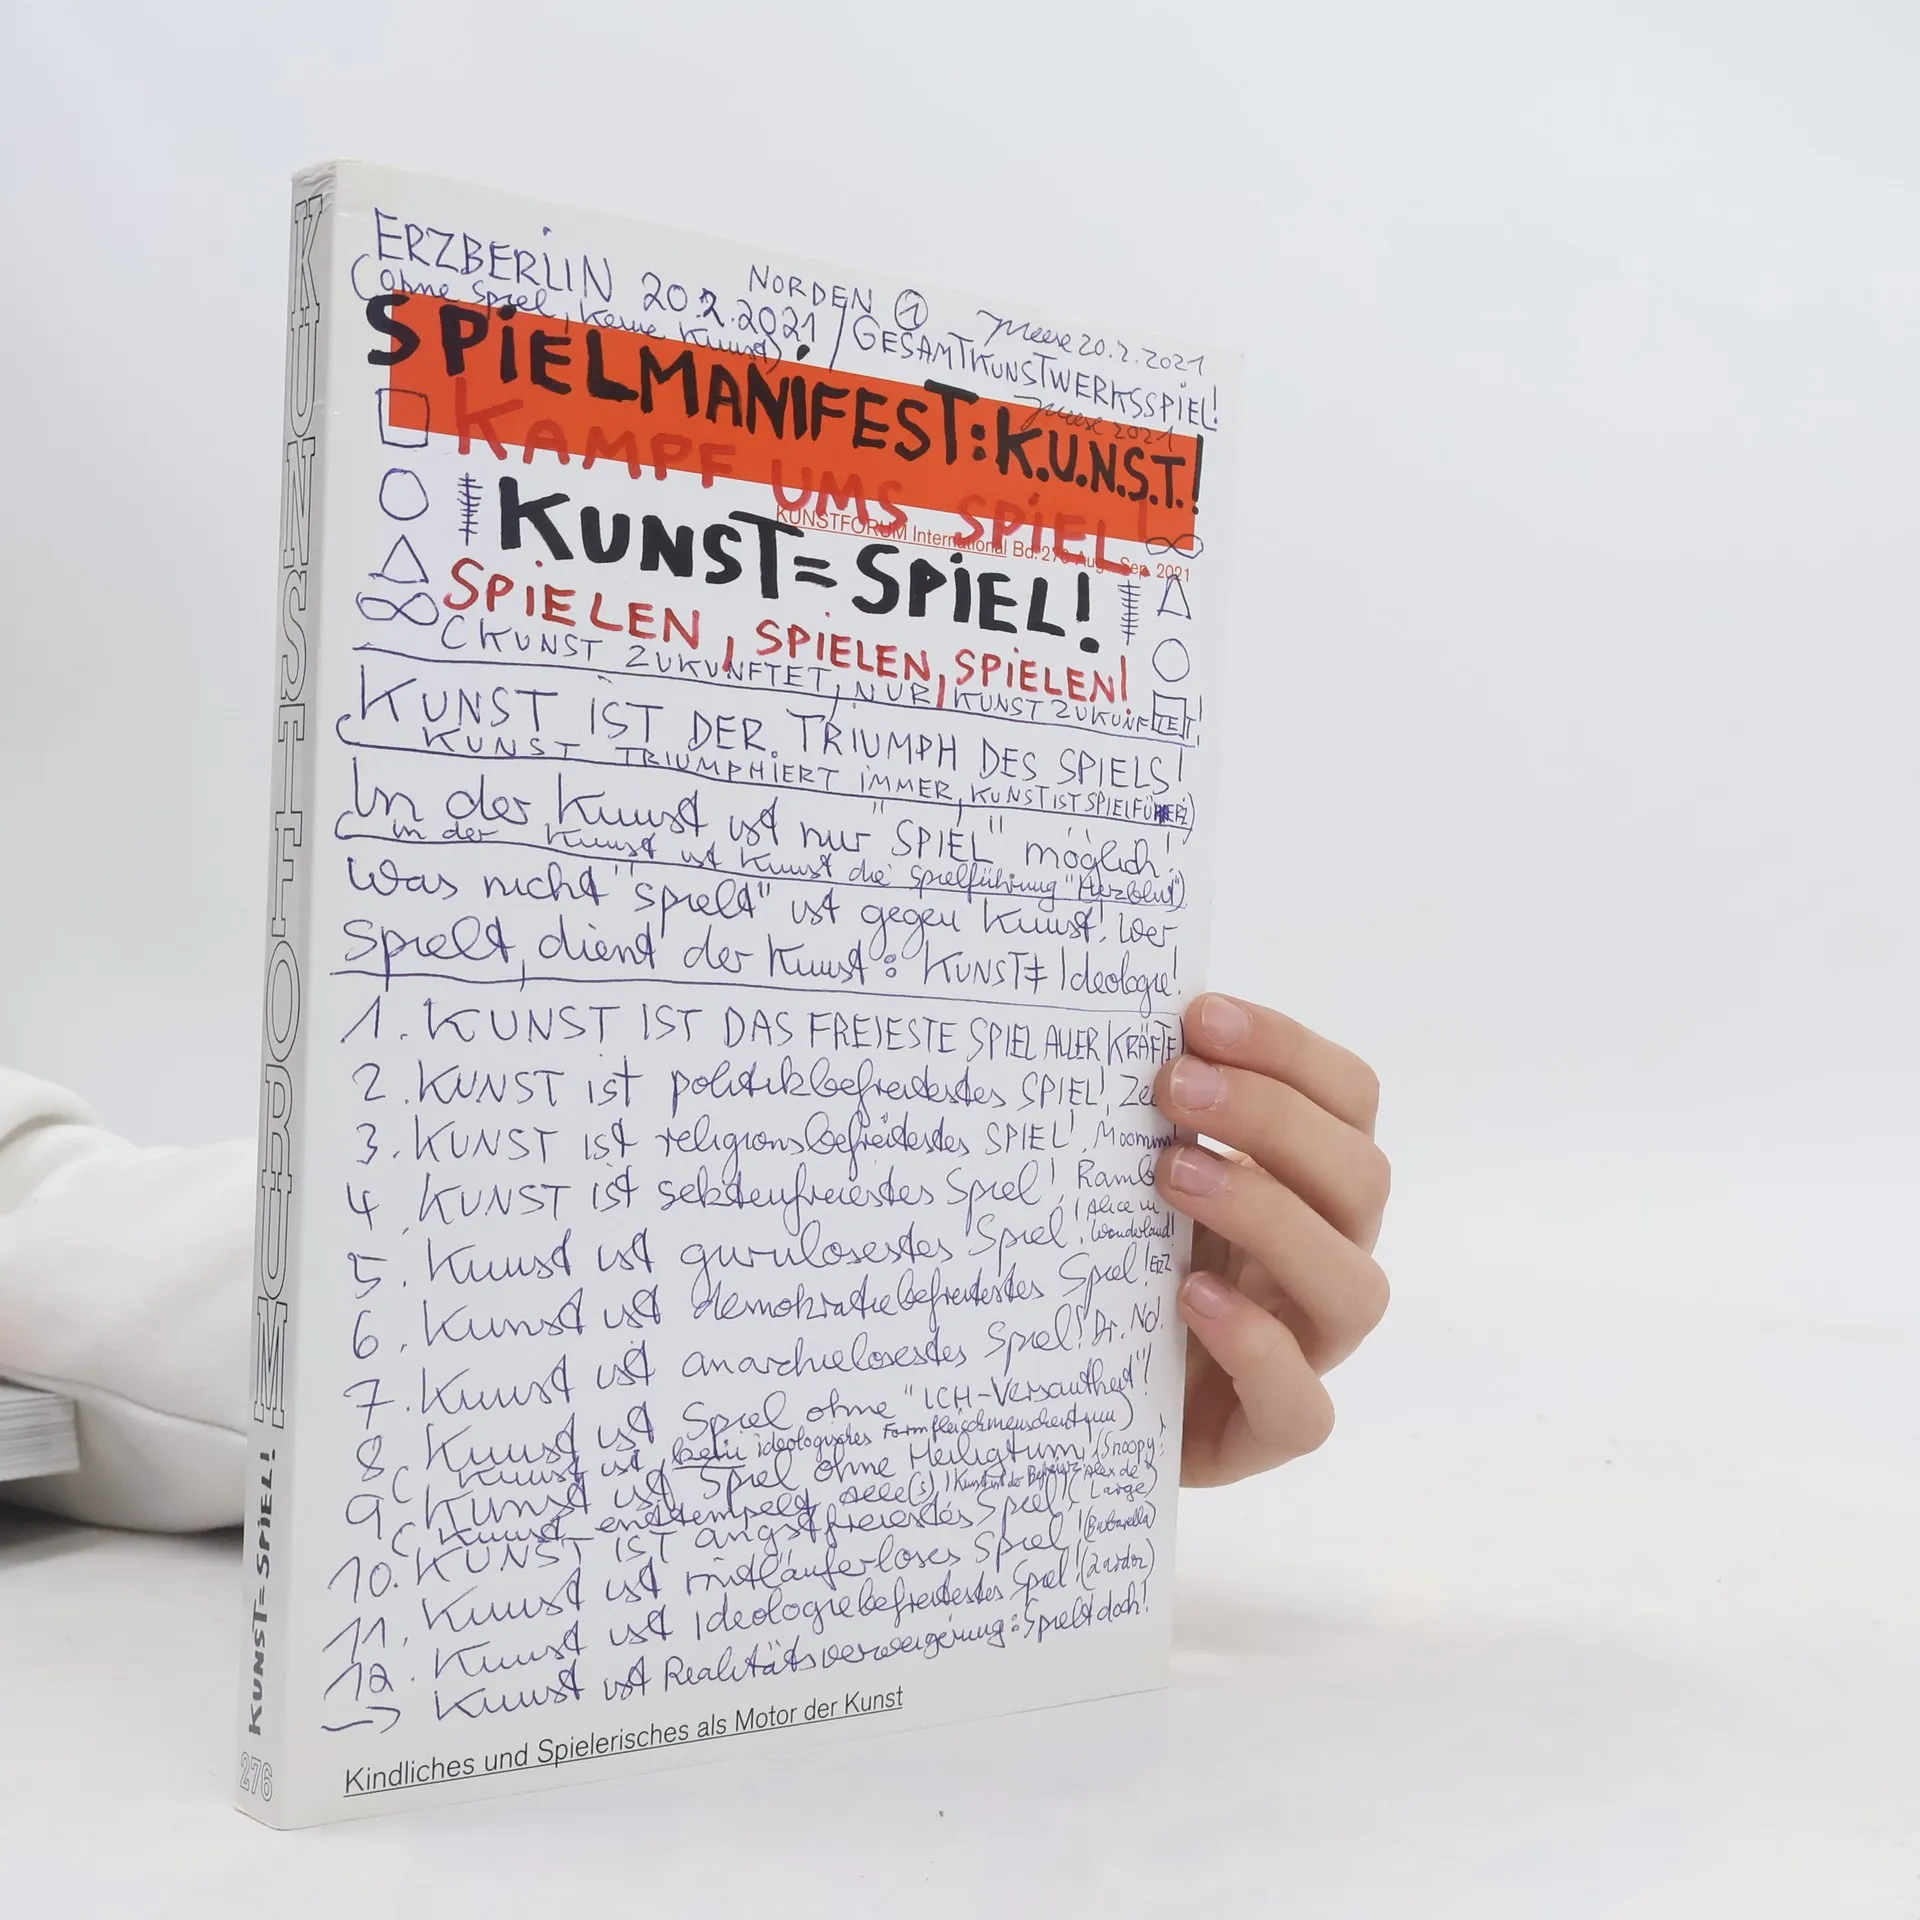 KUNSTFORUM
KUNST=SPIEL!
276
ERZBERLIN 20.2.2021
NORDEN ①
Meese 20.2.2021
(ohne Spiel, keine Kunst)
/GESAMTKUNSTWERKSSPIEL!
SPIELMANIFEST: K.U.N.S.T.!
Meese 2021
KAMPF UMS SPIEL!
KUNSTFORUM International Bd. 276 Aug - Sep. 2021
KUNST=SPIEL!
SPIELEN, SPIELEN, SPIELEN!
(KUNST ZUKUNFTET, NUR KUNST ZUKUNFTET!
KUNST IST DER TRIUMPH DES SPIELS!
(KUNST TRIUMPHIERT IMMER, KUNST IST SPIEL
In der Kunst ist nur "SPIEL" möglich!
(in der Kunst ist Kunst die Spielführung "Herzblut")
Was nicht "spielt" ist gegen Kunst! Wer
Spielt, dient der Kunst: KUNST≠Ideologie!
1. KUNST IST DAS FREIESTE SPIEL ALLER KRÄFTE!
2. KUNST ist politikbefreitestes SPIEL!
3. KUNST ist religionsbefreitestes SPIEL!
4. KUNST ist sektenfreiestes Spiel!
5. Kunst ist gurulosestes Spiel! (Alice in Wonderland!
6. Kunst ist demokratiebefreitestes Spiel! ERZ
7. Kunst ist anarchielosestes Spiel! Dr. No!
8. Kunst ist Spiel ohne "ICH-Versautheit"!
(Kunst ist kein ideologisches Formfleischmenschentum)
9. Kunst ist Spiel ohne Heiligtum! (Snoopy!
(Kunst enttempelt Alle(s)!
10. KUNST IST angstfreiestes Spiel! (Alex de Large)
11. Kunst ist mitläuferloses Spiel! (Barbarella)
12. Kunst ist Ideologiebefreitestes Spiel! (Zardoz)
→ Kunst ist Realitätsverweigerung: Spielt doch!
Kindliches und Spielerisches als Motor der Kunst